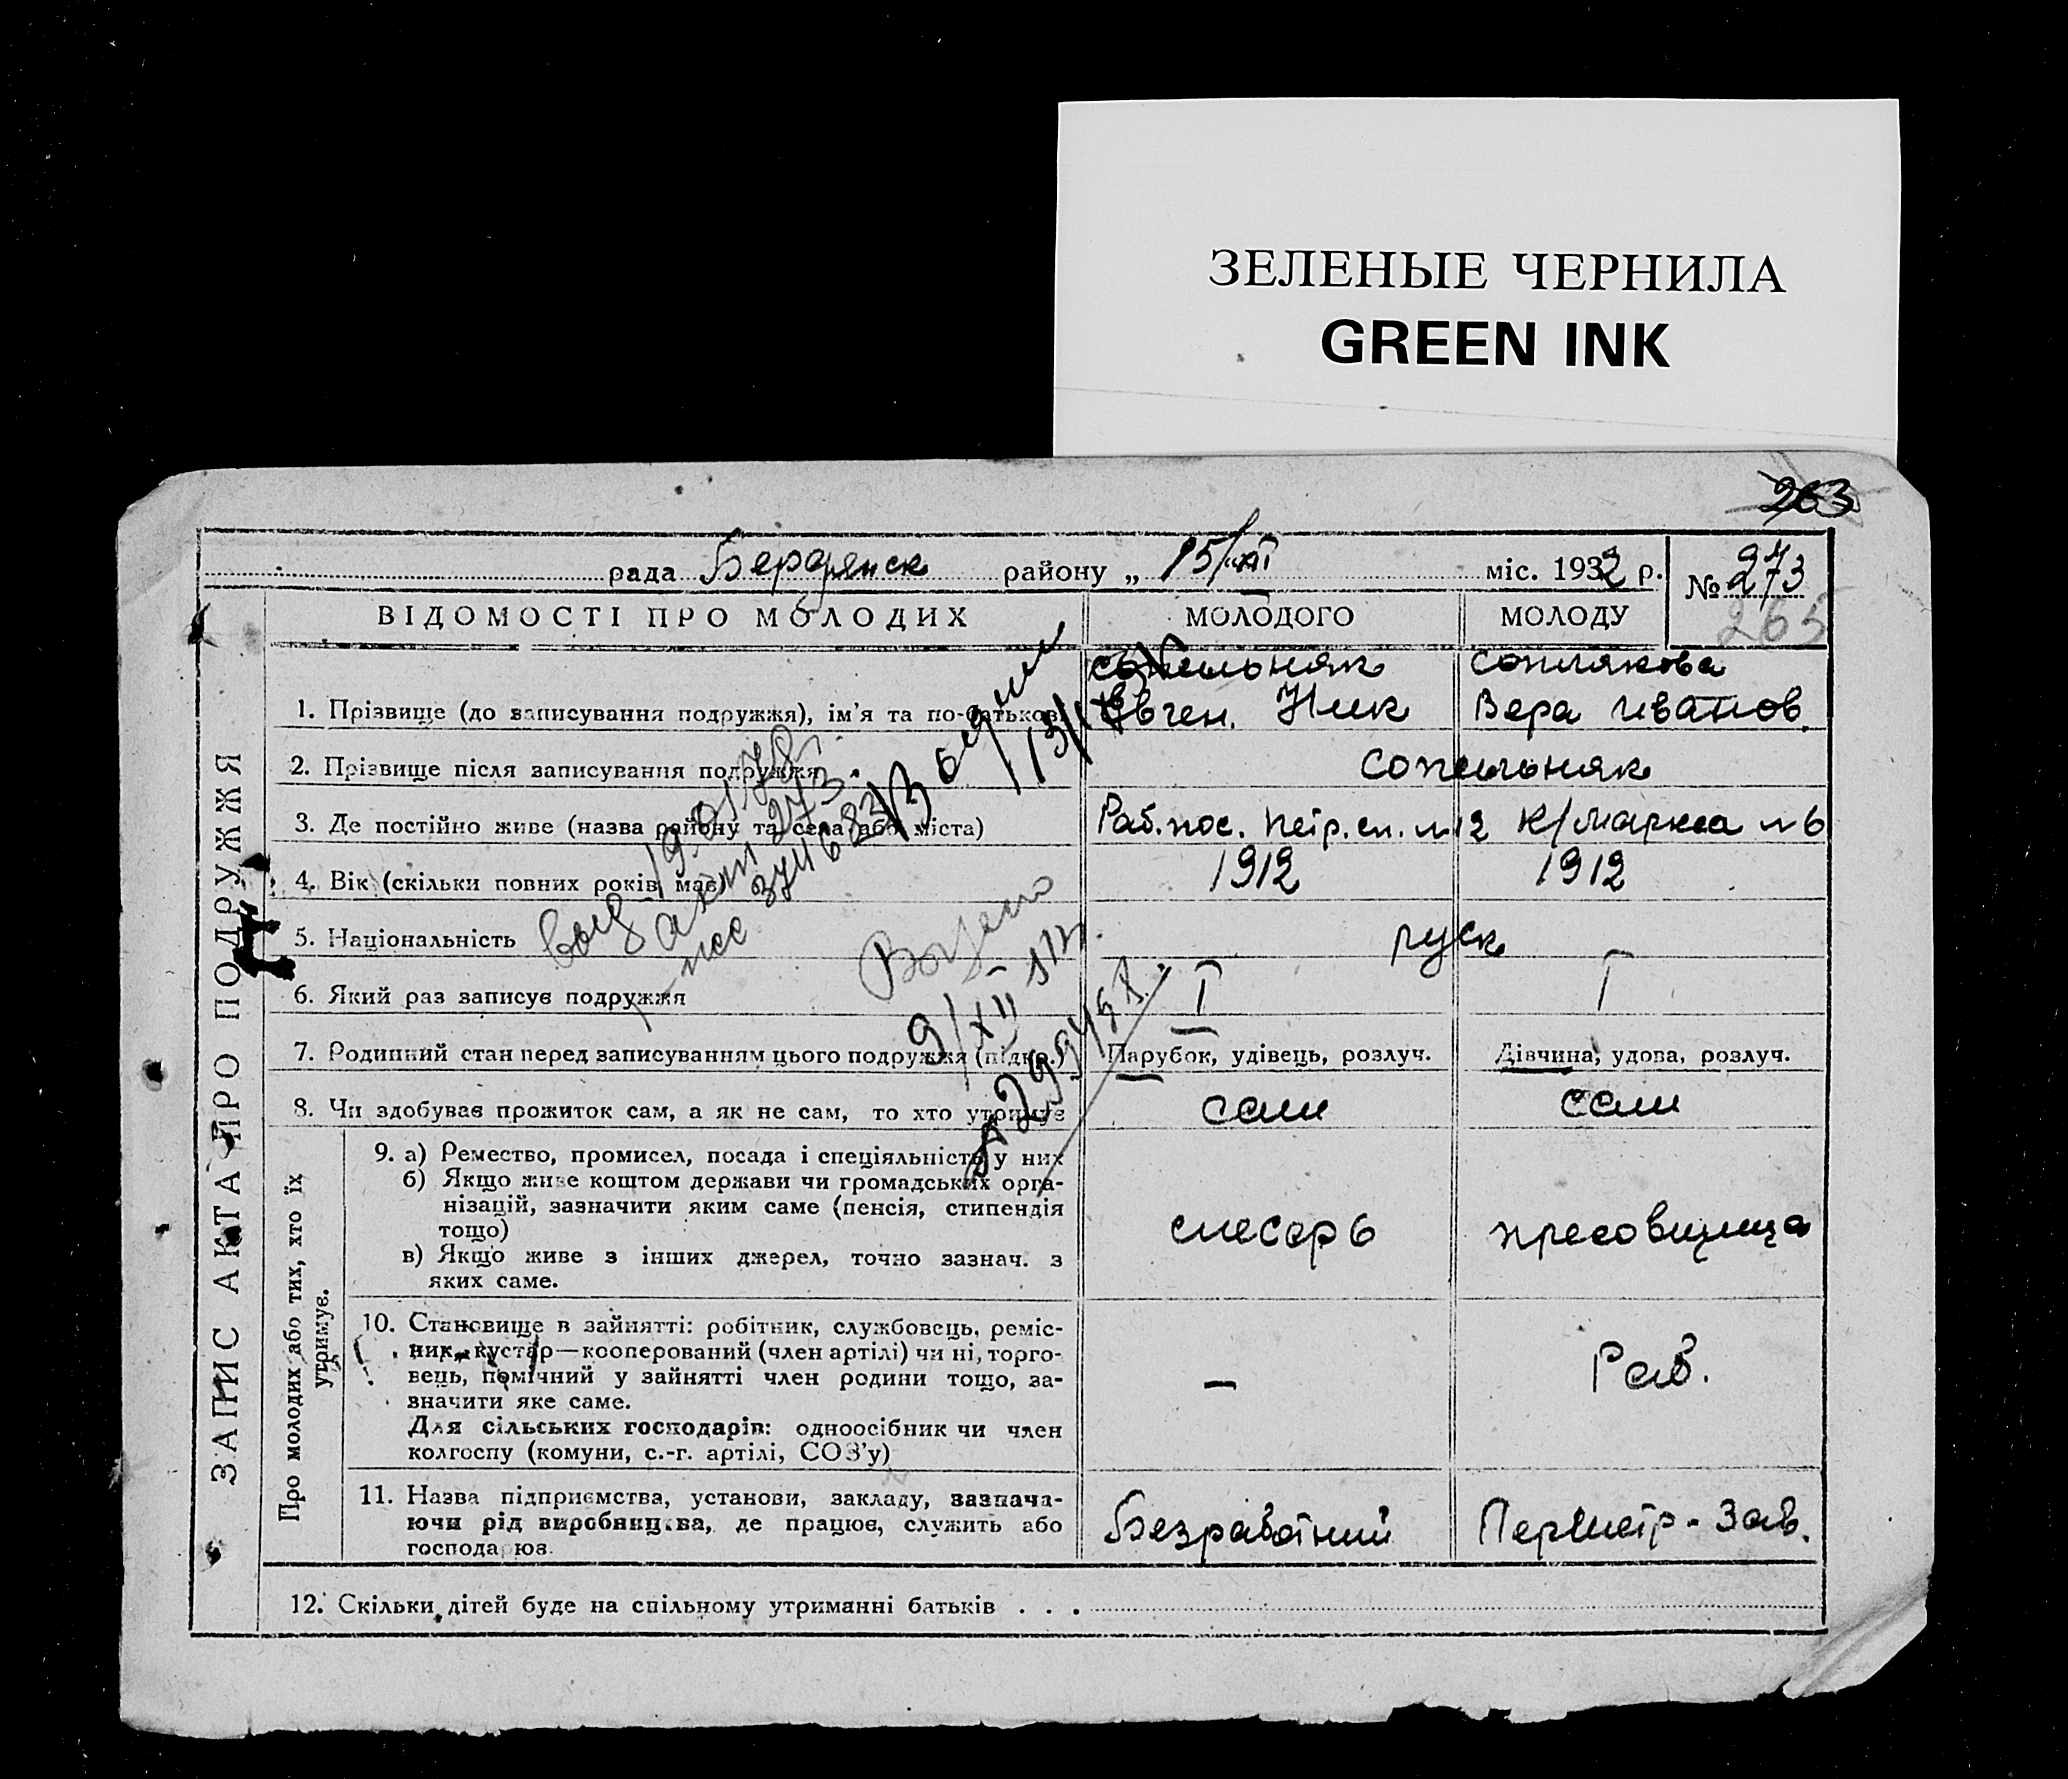 ЗЕЛЕНЫЕ ЧЕРНИЛА
GREEN INK
263
рада Бердянск району „ 15/XII міс. 1932 р. № 273
265
ЗАПИС АКТА ПРО ПОДРУЖЖЯ
ВІДОМОСТІ ПРО МОЛОДИХ МОЛОДОГО МОЛОДУ
1. Прізвище (до записування подружжя), ім'я та по-батькові Евген. Ник Вера Иванов.
2. Прізвище після записування подружжя
3. Де постійно живе (назва району та села або міста) Раб. пос. К/Маркса № 6
4. Вік (скільки повних років має) 1912 1912
5. Національність руск
6. Який раз записує подружжя I I
7. Родинний стан перед записуванням цього подружжя (підкр.) Парубок, удівець, розлуч. Дівчина, удова, розлуч.
8. Чи здобуває прожиток сам, а як не сам, то хто утримує сам сам
Про молодих або тих, хто їх утримує.
9. а) Ремество, промисел, посада і спеціяльність у них
б) Якщо живе коштом держави чи громадських орга-
нізацій, зазначити яким саме (пенсія, стипендія
тощо)
слесарь пресовщица
в) Якщо живе з інших джерел, точно зазнач. з
яких саме.
10. Становище в зайнятті: робітник, службовець, реміс-
ник, кустар—кооперований (член артілі) чи ні, торго-
вець, помічний у зайнятті член родини тощо, за-
значити яке саме.
— Раб.
Для сільських господарів: одноосібник чи член
колгоспу (комуни, с.-г. артілі, СОЗ'у)
11. Назва підприємства, установи, закладу, зазнача-
ючи рід виробництва, де працює, служить або
господарює.
Безработний Зав.
12. Скільки дітей буде на спільному утриманні батьків . . .
19.01.78
273
9/XII